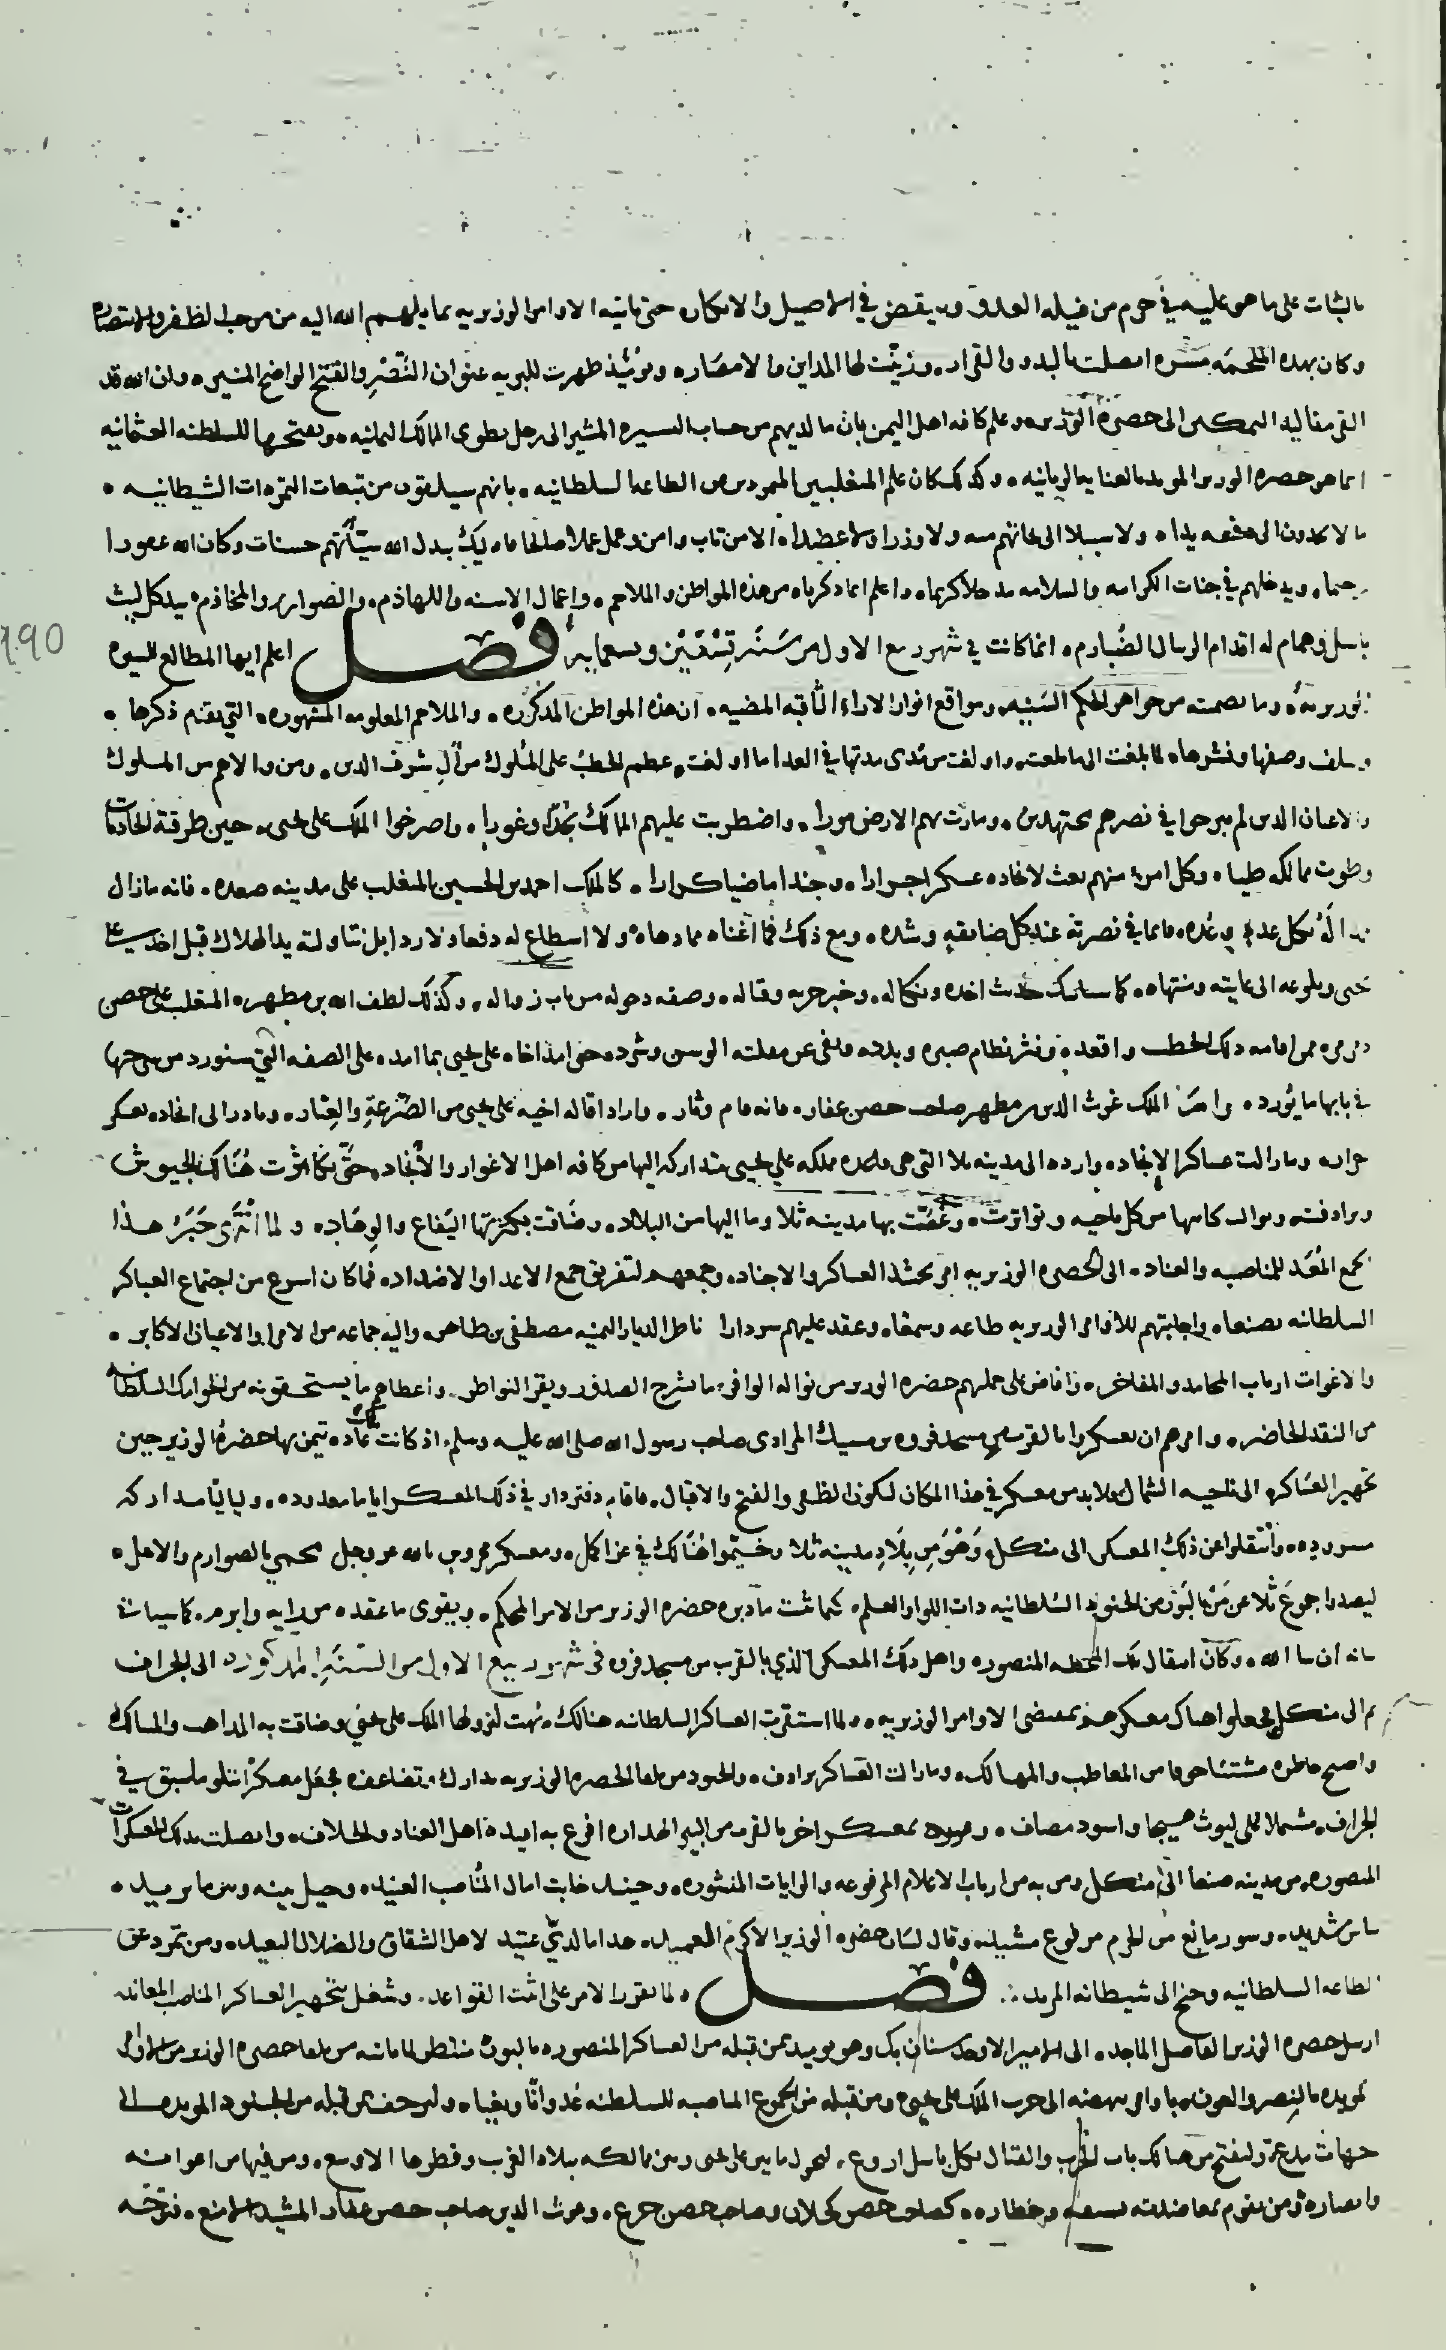 بالثبات على ما هو عليه في حرم من قبله العدو ويقبض في الاصيل والابكار حتى ياتيه الاوامر الوزيريه بما يلهمه الله اليه من موجب الظفر والانتصار
وكان بهذه الملحمه مسره اتصلت بالبدو والقرار وزينت لها المداين والامصار ويومئذ ظهرت للبريه عنوان النصر والفتح الواضح المنير وان الله قد
القى مقاليد التمكين الى حضرة الوزير وعلم كافه اهل اليمن بان ما لديهم من حساب السيره المشير الى رجل يطوى الممالك اليمانيه ويفتحها للسلطنه العثمانيه
انما هو حضره الوزير المويد بالعنايه الربانيه وكذلك كان علم المتغلبين المتمردين عن الطاعه السلطانيه بانهم سيلقون من تبعات التمردات الشيطانيه
ما لا يجدون الى دفعه يدا ولا سبيلا الى نجاتهم منه ولا وزرا ولا عضدا الا من تاب وامن وعمل عملا صالحا فاوليك يبدل الله سيئاتهم حسنات وكان الله غفورا
رحيما ويدخلهم في جنات الكرامه والسلامه مدخلا كريما واعلم انما ذكرناه من هذه المواطن والملاحم واعمال الاسنه واللهاذم والصوارم والمخاذم بيد كل ليث
باسل وهمام له اقدام الريبال الضبارم انما كانت في شهر ربيع الاول من سنة تسعين وتسعمايه فصل اعلم ايها المطالع للسيره
الوزيريه وما تضمنته من جواهر الحكم السنيه ومواقع انوار الاراء الثاقبه المضيه ان هذه المواطن المذكوره والملاحم المعلومه المشهوره التي تقدم ذكرها
وسلف وصفها ونشرها لما بلغت الى ما بلغت واولغت من مدى مدتها في العدا ما اولغت عظم الخطب على الملوك من ال شرف الدين ومن والاهم من الملوك
والاعيان الذين لم يبرحوا في نصرهم مجتهدين ومادت بهم الارض مورا واضطربت عليهم الممالك نجدا وغورا واصرخوا الملك على يحيى حين طرقته الحادثات
وطوت ممالكه طيا وكل امرء منهم بعث لانجاده عسكرا جرارا وجندا ماضيا كرارا كالملك احمد بن الحسين المتغلب على مدينه صعده فانه مازال
ممدا له بكل عده وعده قائما في نصرته عند كل ضايقه وشده ومع ذلك فما اغناه مما دهاه ولا اسطاع له دفعا ولا رد ابل تناولته يد الهلاك قبل اخذ على
يحيى وبلوغه الى غايته ومنتهاه كما سياتيك حديث اخذه ونكاله وخبر حربه وقتاله وصفه دخوله من باب زواله وكذلك لطف الله بن مطهر المتغلب على حصن
ذي مرمر ممن اقامه ذلك الخطب واقعده ونثر نظام صبره وبدده ونفى عن مقلته الوسن وشرده حتى امد اخاه على يحيى بما امد على الصفه التي سنورد من شرحها
في بابها ما يورد واخره الملك غوث الدين بن مطهر صاحب حصن عفار فانه قام وثار واراد اقاله اخيه على يحيى من الصرعة والعثار وبادر الى انجاده بعسكر
جرار وما زالت عساكر الانجاد وارده الى مدينه ثلا التي هي قاعده مملكه على يحيى متداركه اليها من كافه اهل الاغوار والانجاد حتى تكاثرت هناك الجيوش
وترادفت وتوالت كتائبها من كل ناحيه وتواترت وغصت بها مدينه ثلا وما اليها من البلاد وضاقت بكثرتها اليفاع والوهاد ولما انتهى خبر هذا
الجمع المعد للمناصبه والعناد الى الحضره الوزيريه امر بحشد العساكر والاجناد وجمعهم لتفريق جمع الاعدا والاضداد فما كان اسرع من اجتماع العساكر
السلطانيه بصنعا واجابتهم للاوامر الوزيريه طاعه وسمعا وعقد عليهم سردارا ناظر الديار اليمنيه مصطفى بن طاهر واليه جماعه من الامرا والاعيان الاكابر
والاغوات ارباب المحامد والمفاخر وافاض على جملهم حضره الوزير من نواله الوافر ما شرح الصدور ويقر النواظر واعطاهم ما يستحقونه من الجوامك السلطانيه
من النقد الحاضر وامرهم ان يعسكروا بالقرب من مسجد فروه بن مسيك المرادى صاحب رسول الله صلى الله عليه وسلم اذ كانت عاده تيمن بها حضرة الوزير حين
تجهيز العساكر الى ناحيه الشمال فلا بد من معسكر في هذا المكان ليكون الظفر والفتح والاقبال فاقام دفتردار في ذلك المعسكر اياما معدوده وليالي متداركه
مسروده وانتقلوا عن ذلك المعسكر الى منكل وهو من بلاد مدينه ثلا وخيموا هنالك في عز اكمل ومعسكر محروس بالله عز وجل محمي بالصوارم والاسل
ليصدوا جموع ثلا عن من بالبون من الجنود السلطانيه ذات اللوا والعلم كيما يثبت ما دبره حضره الوزير من الامر المحكم ويقوى ما عقده من رايه وابرم كما سياتى
بيانه ان شا الله وكان انتقال تلك المحطه المنصوره واهل ذلك المعسكر الذي بالقرب من مسجد فروه في شهر ربيع الاول من السنة المذكوره الى الجراف
ثم الى منكل فجعلوا هناك معسكرهم بمقتضى الاوامر الوزيريه ولما استقرت العساكر السلطانيه هنالك بهت لنزولها الملك على يحيى وضاقت به المذاهب والمسالك
واصبح خاطره مشتتا خوفا من المعاطب والمهالك وما زالت العساكر ترادف والجنود من تلقا الحضره الوزيريه تدارك وتضاعف فجعل معسكرا يتلو ما سبق في
الجراف مشتملا على ليوث هيجا واسود مصاف بمعسكر اخر بالقرب من البير الهداره افزع به افيدة اهل العناد والخلاف واتصلت بذلك المعسكرات
المنصوره من مدينه صنعا الى منكل ومن به من ارباب الاعلام المرفوعه والرايات المنشوره وحينيذ خابت امال المناصب العنيد وحيل بينه وبين ما يريد
بباس شديد وسور مانع من الحزم مرفوع مشيد وقال لسان حضره الوزير الاكرم العميد هذا ما لدي عتيد لاهل الشقاق والضلال البعيد ومن تمرد عن
الطاعه السلطانيه وجنح الى شيطانه المريد فصل ولما تقرر الامر على اثبت القواعد وشغل بتجهيز العساكر المناصب المعاند
ارسل حضره الوزير الفاضل الماجد الى الامير الاوحد سنان بك وهو يوميذ بمن قبله من العساكر المنصوره بالبون منتظر لما ياتيه من تلقا حضره الوزير من الاوامر
المويده بالنصر والعون باوامر تنهضه الى حرب الملك على يحيى ومن قبله من الجموع المناصبه للسلطنه عدوانا وبغيا وليزحف بمن قبله من الجنود المويده الى
جهات مدع وليفتح من هنالك باب الحرب والقتال بكل باسل اروع ليحول ما بين على يحيى وبين ممالكه ببلاد الغرب وقطرها الاوسع ومن فيها من اعوانه
وانصاره ومن يقوم بمعاضدته كصاحب حصن كحلان وصاحب حصن وغوث الدين صاحب حصن عفار المشيد الامنع فتوجه